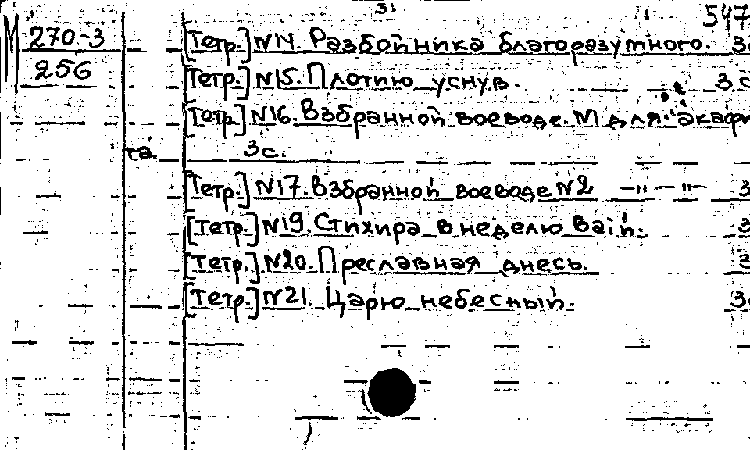 3.
547
М 270-3
256
[Тетр.] №14. Разбойника благоразумного. 3
[Тетр.] №15. Плотию уснув. 3 с
[Тетр.] №16. Взбранной воеводе. М для акафи
та. 3с.
[Тетр.] №17. Взбранной воеводе №2 —"—"— 3
[Тетр.] №19. Стихира в неделю Ваий. 3
[Тетр.] №20. Преславная днесь. 3
[Тетр.] №21. Царю небесный. 3